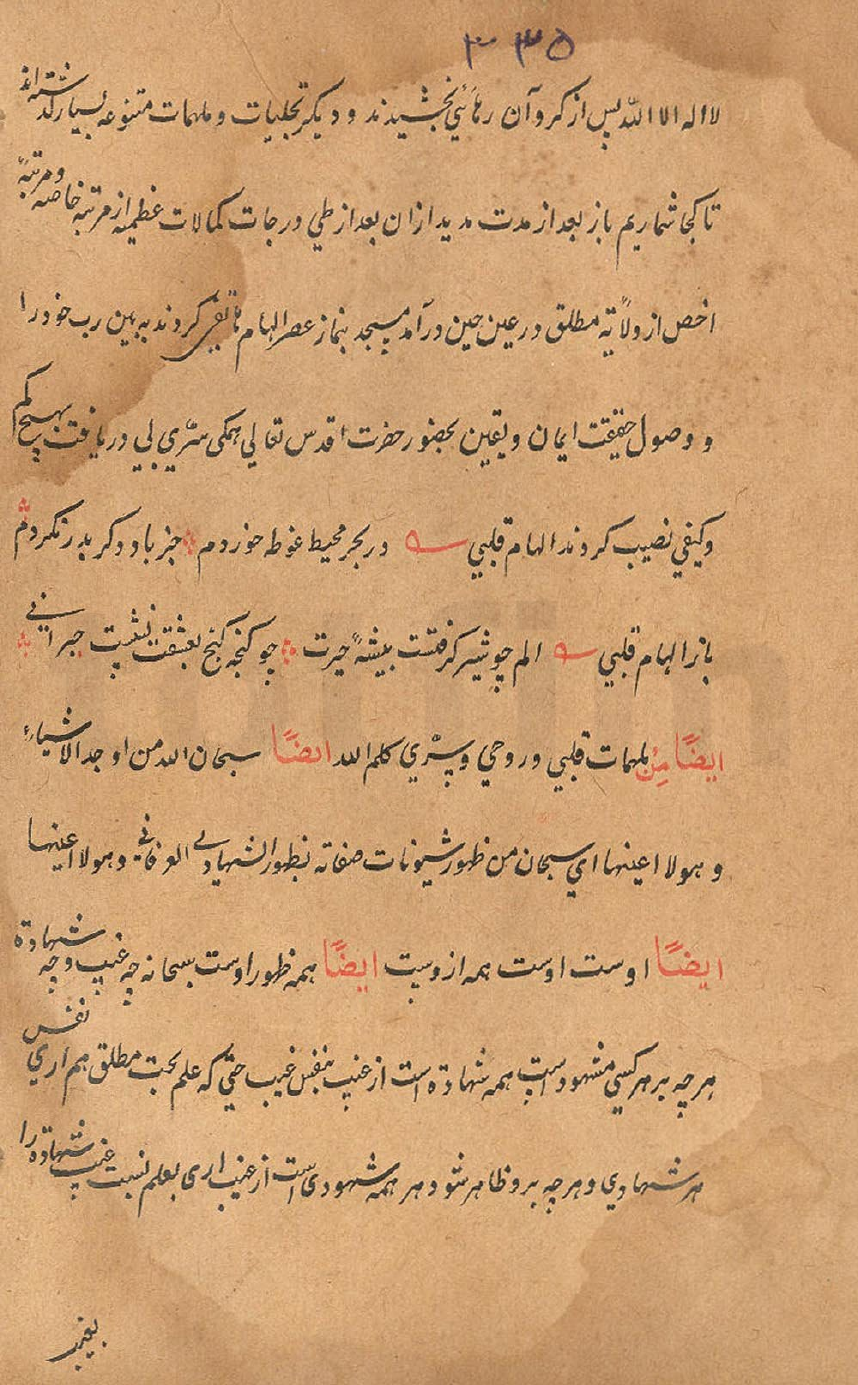 ۳۳۵
لااله الا الله پس از کروآن رهائي بخشیدند و دیکر تجلیات و ملهمات متنوعه بسیار کذشته اند
تا کجا شماریم باز بعد از مدت مدید ازان بعد از طي درجات کمالات عظیمه از مرتبه خاصه و مرتبهٔ
اخص از ولایة مطلق در عین حین درآمد مسجد بنماز عصر الهام هاتفي کردند به بین رب خود را
و وصول حقیقت ایمان و یقین بحضور حضرت اقدس تعالي همکي سرّي بي دریافت بهیچ کم
و کیفي نصیب کردند الهام قلبي در بحر محیط غوطه خوردم جز باد دکر بدر نکردم
باز الهام قلبي الم چو شیر کرفتست بیشهٔ حیرت چو کنجه کنج بعشقت نشست جبراني
ایضًا مِن ملهمات قلبي و روحي و سرّي کلم الله ایضًا سبحان الله من اوجد الاشیاء
و هو لا اعینها اي سبحان من ظهور شیونات صفاته بظهور الشهادي العرفاني و هو لا اعینها
ایضًا اوست اوست همه ازوست ایضًا همه ظهور اوست سبحانه چه غیب و چه شهادة
هر چه بر هر کسي مشهود است همه شهادة است از غیب بنفس غیب حتي که علم بحت مطلق هم اري نفس
هر شهادي و هر چه برو ظاهر شود هر همه شهودي است از غیب اري بعلم نسبت غیب شهادة را
بغیب